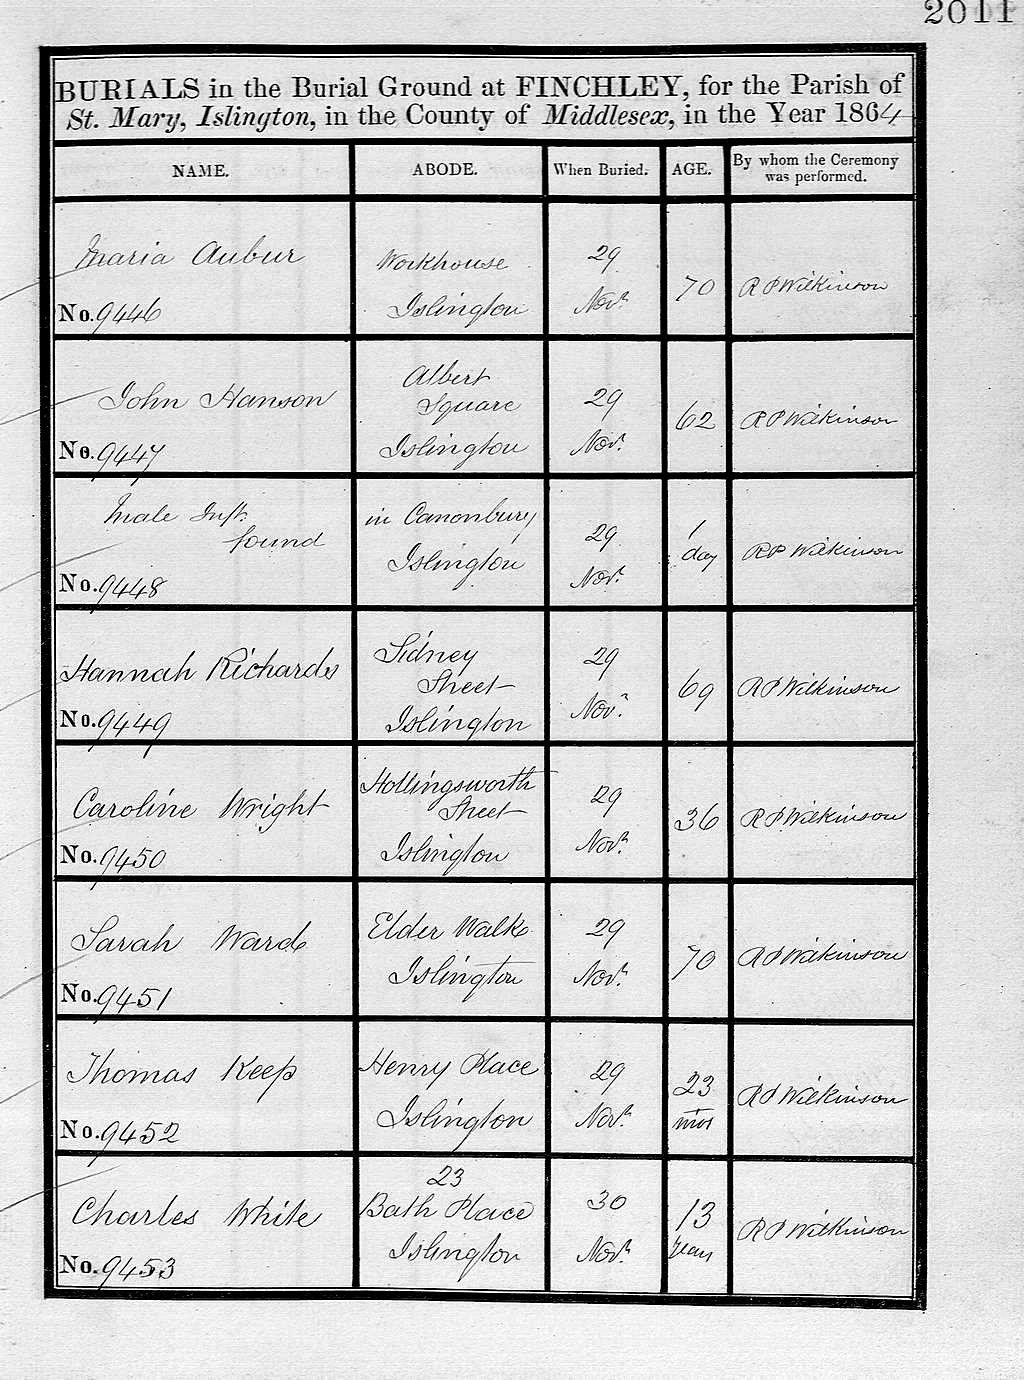 2011
BURIALS in the Burial Ground at FINCHLEY, for the Parish of
St. Mary, Islington, in the County of Middlesex, in the Year 1864
NAME. ABODE. When Buried. AGE. By whom the Ceremony was performed.
Maria Aubur
Workhouse
Islington
29
Novr
70
R P Wilkinson
No. 9446
John Hanson
Albert
Square
Islington
29
Novr
62
R P Wilkinson
No. 9447
Male Inft.
found
in Canonbury
Islington
29
Novr
1
day
R P Wilkinson
No. 9448
Hannah Richards
Sidney
Street
Islington
29
Novr
69
R P Wilkinson
No. 9449
Caroline Wright
Hollingsworth
Street
Islington
29
Novr
36
R P Wilkinson
No. 9450
Sarah Ward
Elder Walk
Islington
29
Novr
70
R P Wilkinson
No. 9451
Thomas Keep
Henry Place
Islington
29
Novr
23
mos
R P Wilkinson
No. 9452
Charles White
23
Bath Place
Islington
30
Novr
13
years
R P Wilkinson
No. 9453